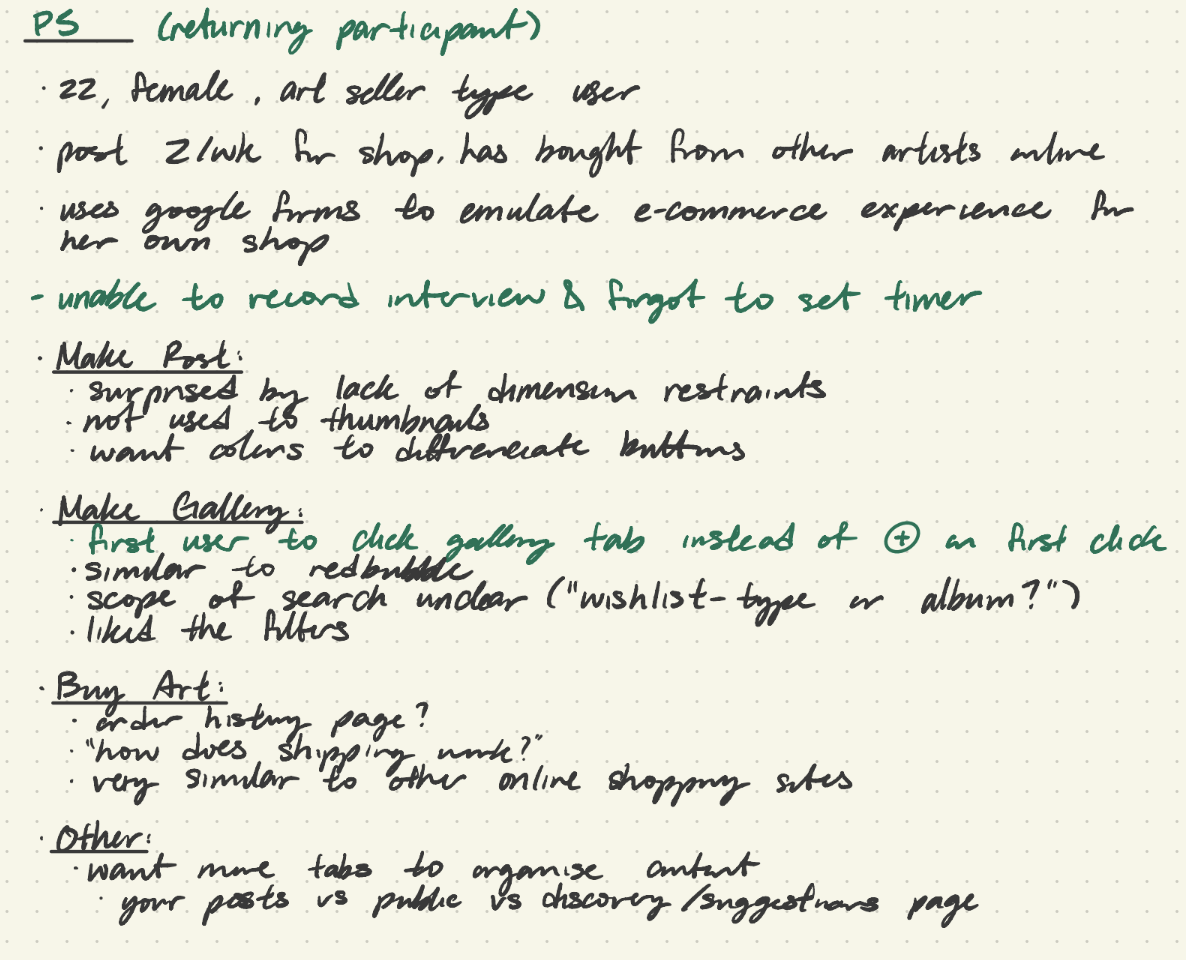 P5 (returning participant)
· 22, female, art seller type user
· post 2/wk for shop, has bought from other artists online
· uses google forms to emulate e-commerce experience for
her own shop
- unable to record interview & forgot to set timer
· Make Post:
· surprised by lack of dimension restraints
· not used to thumbnails
· want colors to differenciate buttons
· Make Gallery:
· first user to click gallery tab instead of ⊕ on first click
· similar to redbubble
· scope of search unclear ("wishlist-type or album?")
· liked the filters
· Buy Art:
· order history page?
· "how does shipping work?"
· very similar to other online shopping sites
· Other:
· want more tabs to organise content
· your posts vs public vs discovery/suggestions page